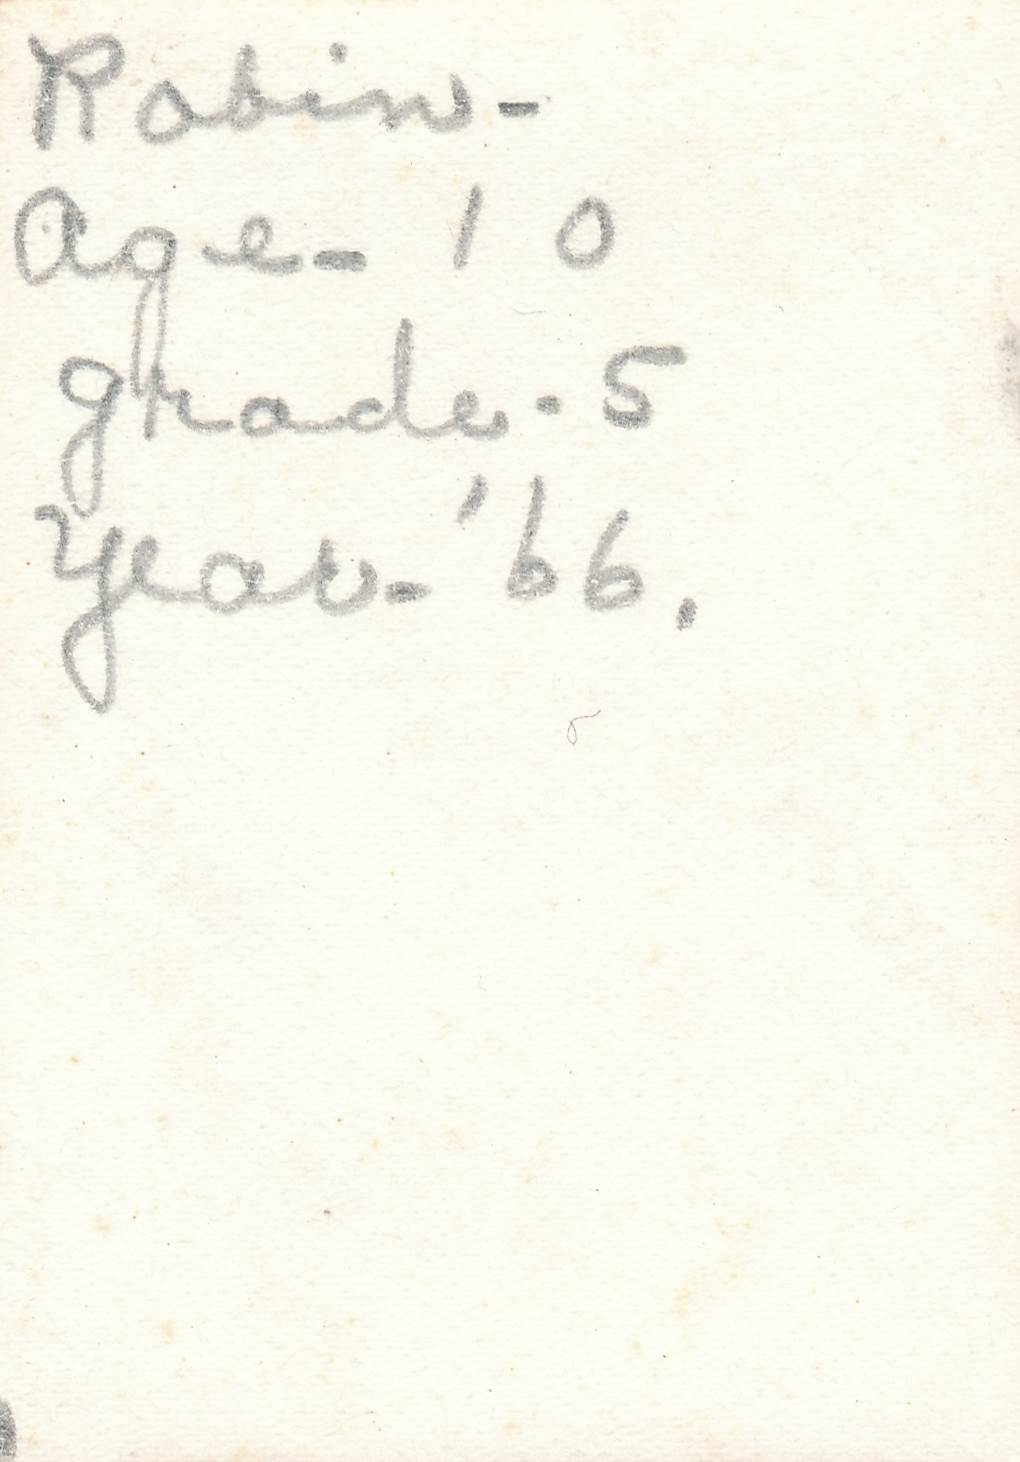 Robin-
Age- 10
grade- 5
Year- '66.